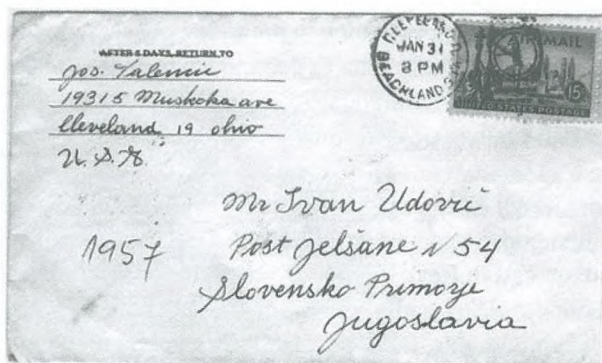 AFTER 5 DAYS, RETURN TO
Jos.
19315 Muskoka ave
Cleveland 19 Ohio
U.S.A.
CLEVELAND, O.
JAN 31
8 PM
BEACHLAND STA.
AIR MAIL
15¢
UNITED STATES POSTAGE
Mr Ivan Udovič
Post Jelšane N 54
Slovensko Primorje
Jugoslavia
1957